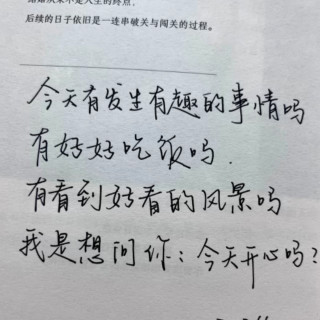 后续的日子依旧是一连串破关与闯关的过程。
今天有发生有趣的事情吗
有好好吃饭吗.
有看到好看的风景吗
我是想问你：今天开心吗？